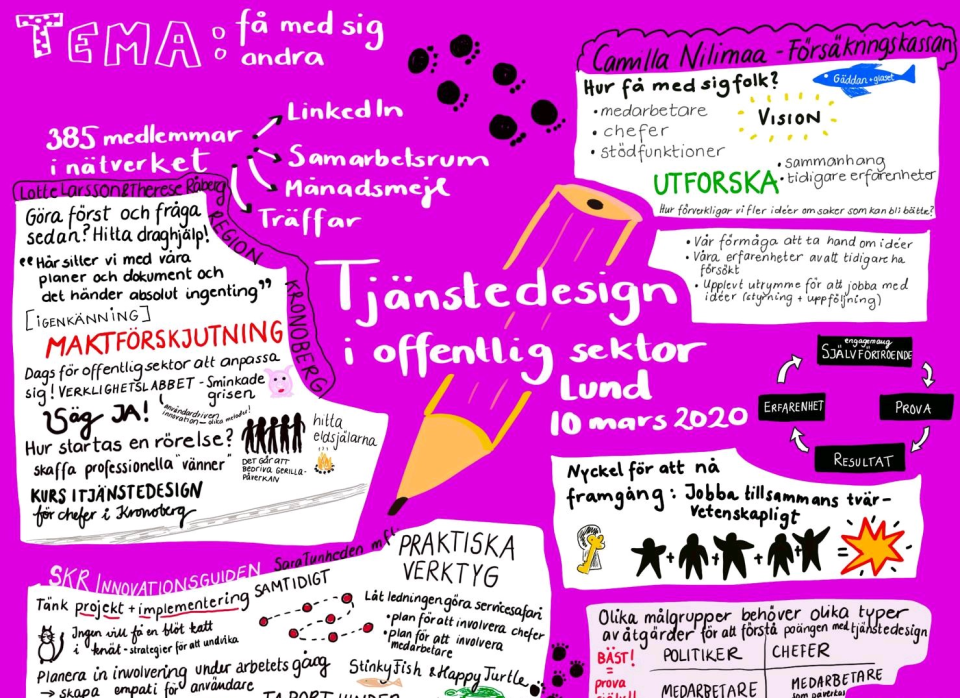 TEMA: få med sig
andra
385 medlemmar
i nätverket
LinkedIn
Samarbetsrum
Månadsmejl
Träffar
Tjänstedesign
i offentlig sektor
Lund
10 mars 2020
Lotte Larsson & Therese Råberg
REGION
KRONOBERG
Göra först och fråga
sedan? Hitta draghjälp!
"Här sitter vi med våra
planer och dokument och
det händer absolut ingenting"
[IGENKÄNNING]
MAKTFÖRSKJUTNING
Dags för offentlig sektor att anpassa
sig! VERKLIGHETSLABBET - Sminkade
grisen
Säg JA!
användardriven
innovation - olika metoder!
Hur startas en rörelse?
skaffa professionella "vänner"
hitta
eldsjälarna
DET GÅR ATT
BEDRIVA GERILLA-
PÅVERKAN
KURS I TJÄNSTEDESIGN
för chefer i Kronoberg
Camilla Nilimaa - Försäkringskassan
Hur få med sig folk?
• medarbetare
• chefer
• stödfunktioner
Gäddan + glaset
VISION
UTFORSKA
• sammanhang
• tidigare erfarenheter
Hur förverkligar vi fler idéer om saker som kan bli bättre?
• Vår förmåga att ta hand om idéer
• Våra erfarenheter av att tidigare ha
försökt
• Upplevt utrymme för att jobba med
idéer (styrning + uppföljning)
engagemang
SJÄLVFÖRTROENDE
ERFARENHET
PROVA
RESULTAT
Nyckel för att nå
framgång: Jobba tillsammans tvär-
vetenskapligt
+ + + + =
SKR INNOVATIONSGUIDEN
Sara Tunheden mfl
Tänk projekt + implementering SAMTIDIGT
Ingen vill få en blöt katt
i knät - strategier för att undvika
Planera in involvering under arbetets gång
→ skapa empati för användare
PRAKTISKA
VERKTYG
Låt ledningen göra servicesafari
• plan för att involvera chefer
• plan för att involvera
medarbetare
Stinky Fish & Happy Turtle
TA BORT HINDER
Olika målgrupper behöver olika typer
av åtgärder för att förstå poängen med tjänstedesign
BÄST!
=
prova
själv!!
POLITIKER
CHEFER
MEDARBETARE
MEDARBETARE